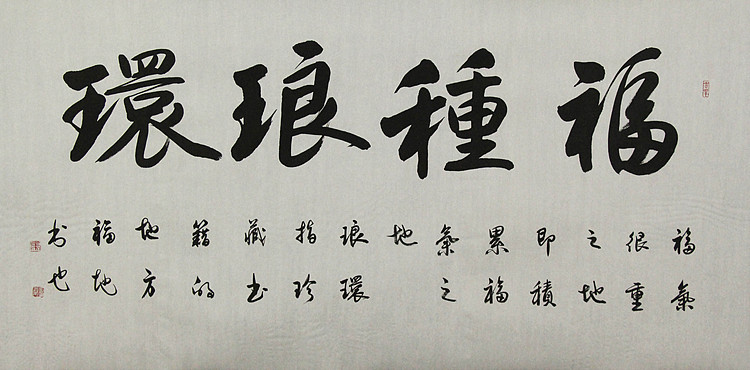 福種琅環
福氣
很重
之地
即積
累福
氣之
地
琅環
指珍
藏书
籍的
地方
福地
也